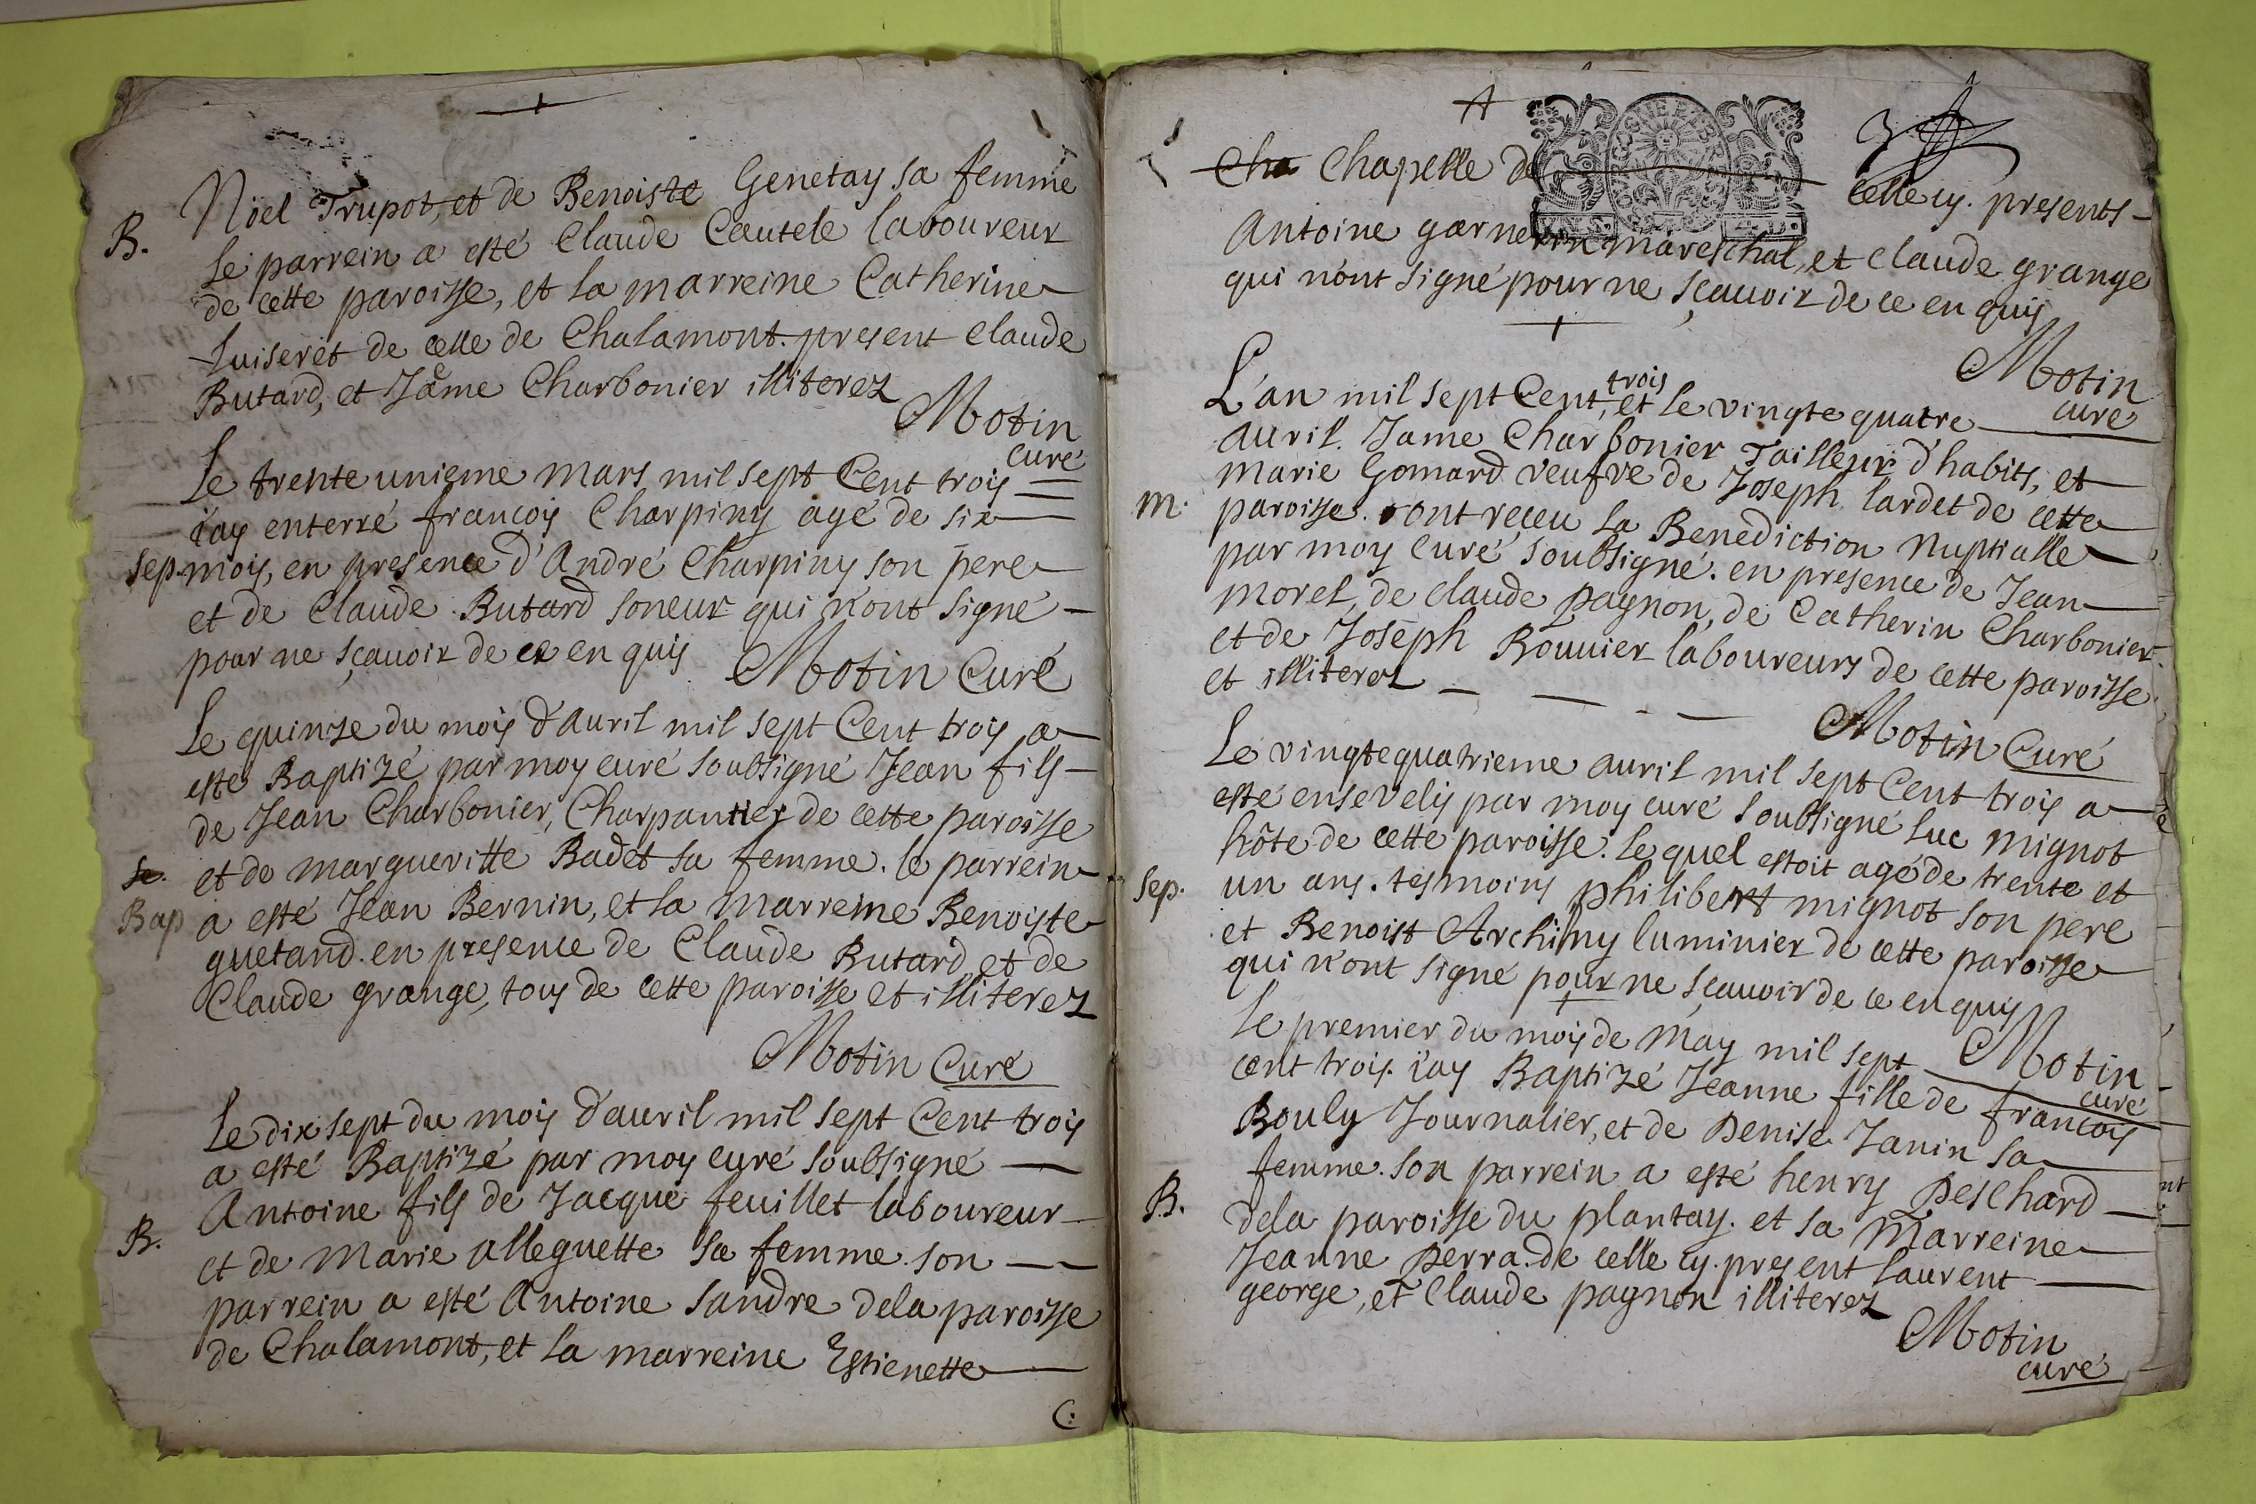 Nöel Trupot, et de Benoiste Genetay sa femme
B.
le parrein a esté Claude Cautele laboureur
de cette paroisse, et la marreine Catherine
Luiseret de celle de Chalamont. present claude
Butard, et Jame Charbonier illiterez
Motin
curé
Le trente unieme mars mil sept Cent trois
i'ay enterré francois Charpiny agé de six
sep.
mois, en presence d'André Charpiny son pere
et de Claude Butard soneur qui n'ont signé
pour ne sçauoir de ce en quis
Motin Curé
Le quinze du mois d'auril mil sept Cent trois a
esté Baptizé par moy curé soubsigné Jean fils
de Jean Charbonier, Charpantier de cette paroisse
se.
et de margueritte Badet sa femme. le parrein
Bap
a esté Jean Bernin, et la marreine Benoiste
guetand. en presence de Claude Butard et de
Claude grange, tous de cette paroisse et illiterez
Motin Curé
Le dix sept du mois d'auril mil sept Cent trois
a esté Baptizé par moy curé soubsigné
Antoine fils de Jacque feuillet laboureur
B.
et de Marie alleguette sa femme. son
parrein a esté Antoine Sandre dela paroisse
de Chalamont, et la marreine Estienette
C.
3
Cha Chapelle de celle cy. presents
Antoine garnerin mareschal, et claude grange
qui n'ont signé pour ne sçauoir de ce en quis
Motin
curé
L'an mil sept Cent, trois et le vingte quatre
auril. Jame Charbonier Tailleur d'habits, et
marie Gomard veufve de Joseph lardet de cette
m.
paroisse. ont receu la Benediction nuptialle
par moy curé soubsigné. en presence de Jean
morel, de claude pagnon, de Catherin Charbonier
et de Joseph Rouuier laboureurs de cette paroisse
et illiterez
Motin Curé
Le vingtequatrieme auril mil sept Cent trois a
esté ensevelis par moy curé soubsigné luc mignot
hôte de cette paroisse. le quel estoit agé de trente et
sep.
un ans. tesmoins philibert mignot son pere
et Benoist Archiny luminier de cette paroisse
qui n'ont signé pour ne sçauoir de ce en quis
Motin
curé
Le premier du mois de may mil sept
cent trois. i'ay Baptizé Jeanne fille de francois
Bouly Journalier, et de Denise Janin sa
femme. son parrein a esté henry Deschard
B.
dela paroisse du plantay. et sa Marreine
Jeanne Perra. de celle cy. present laurent
george, et Claude pagnon illiterez
Motin
curé